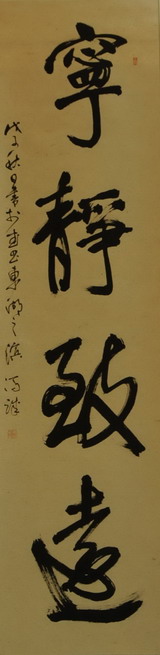 寧靜致遠
戊子秋日書於東湖之濱